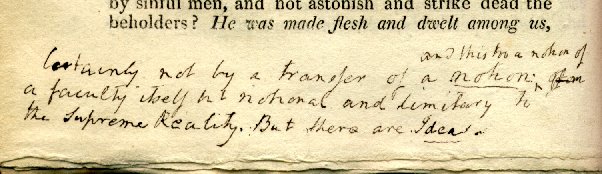 by sinful men, and not astonish and strike dead the
beholders? He was made flesh and dwelt among us,
and this too a notion of
Certainly not by a transfer of a notion;
a faculty itself notional and limitary to
the Supreme Reality. But there are Ideas.